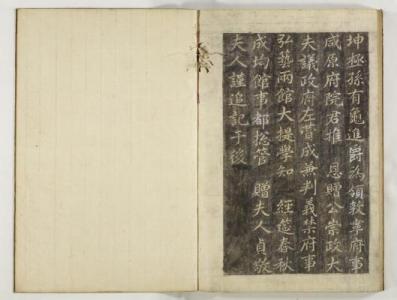 坤極孫有龜進爵為領敦寧府事
咸原府院君推 恩贈公崇政大
夫議政府左贊成兼判義禁府事
弘藝兩館大提學知 經筵春秋
成均館事都捴管 贈夫人貞敬
夫人謹追記于後